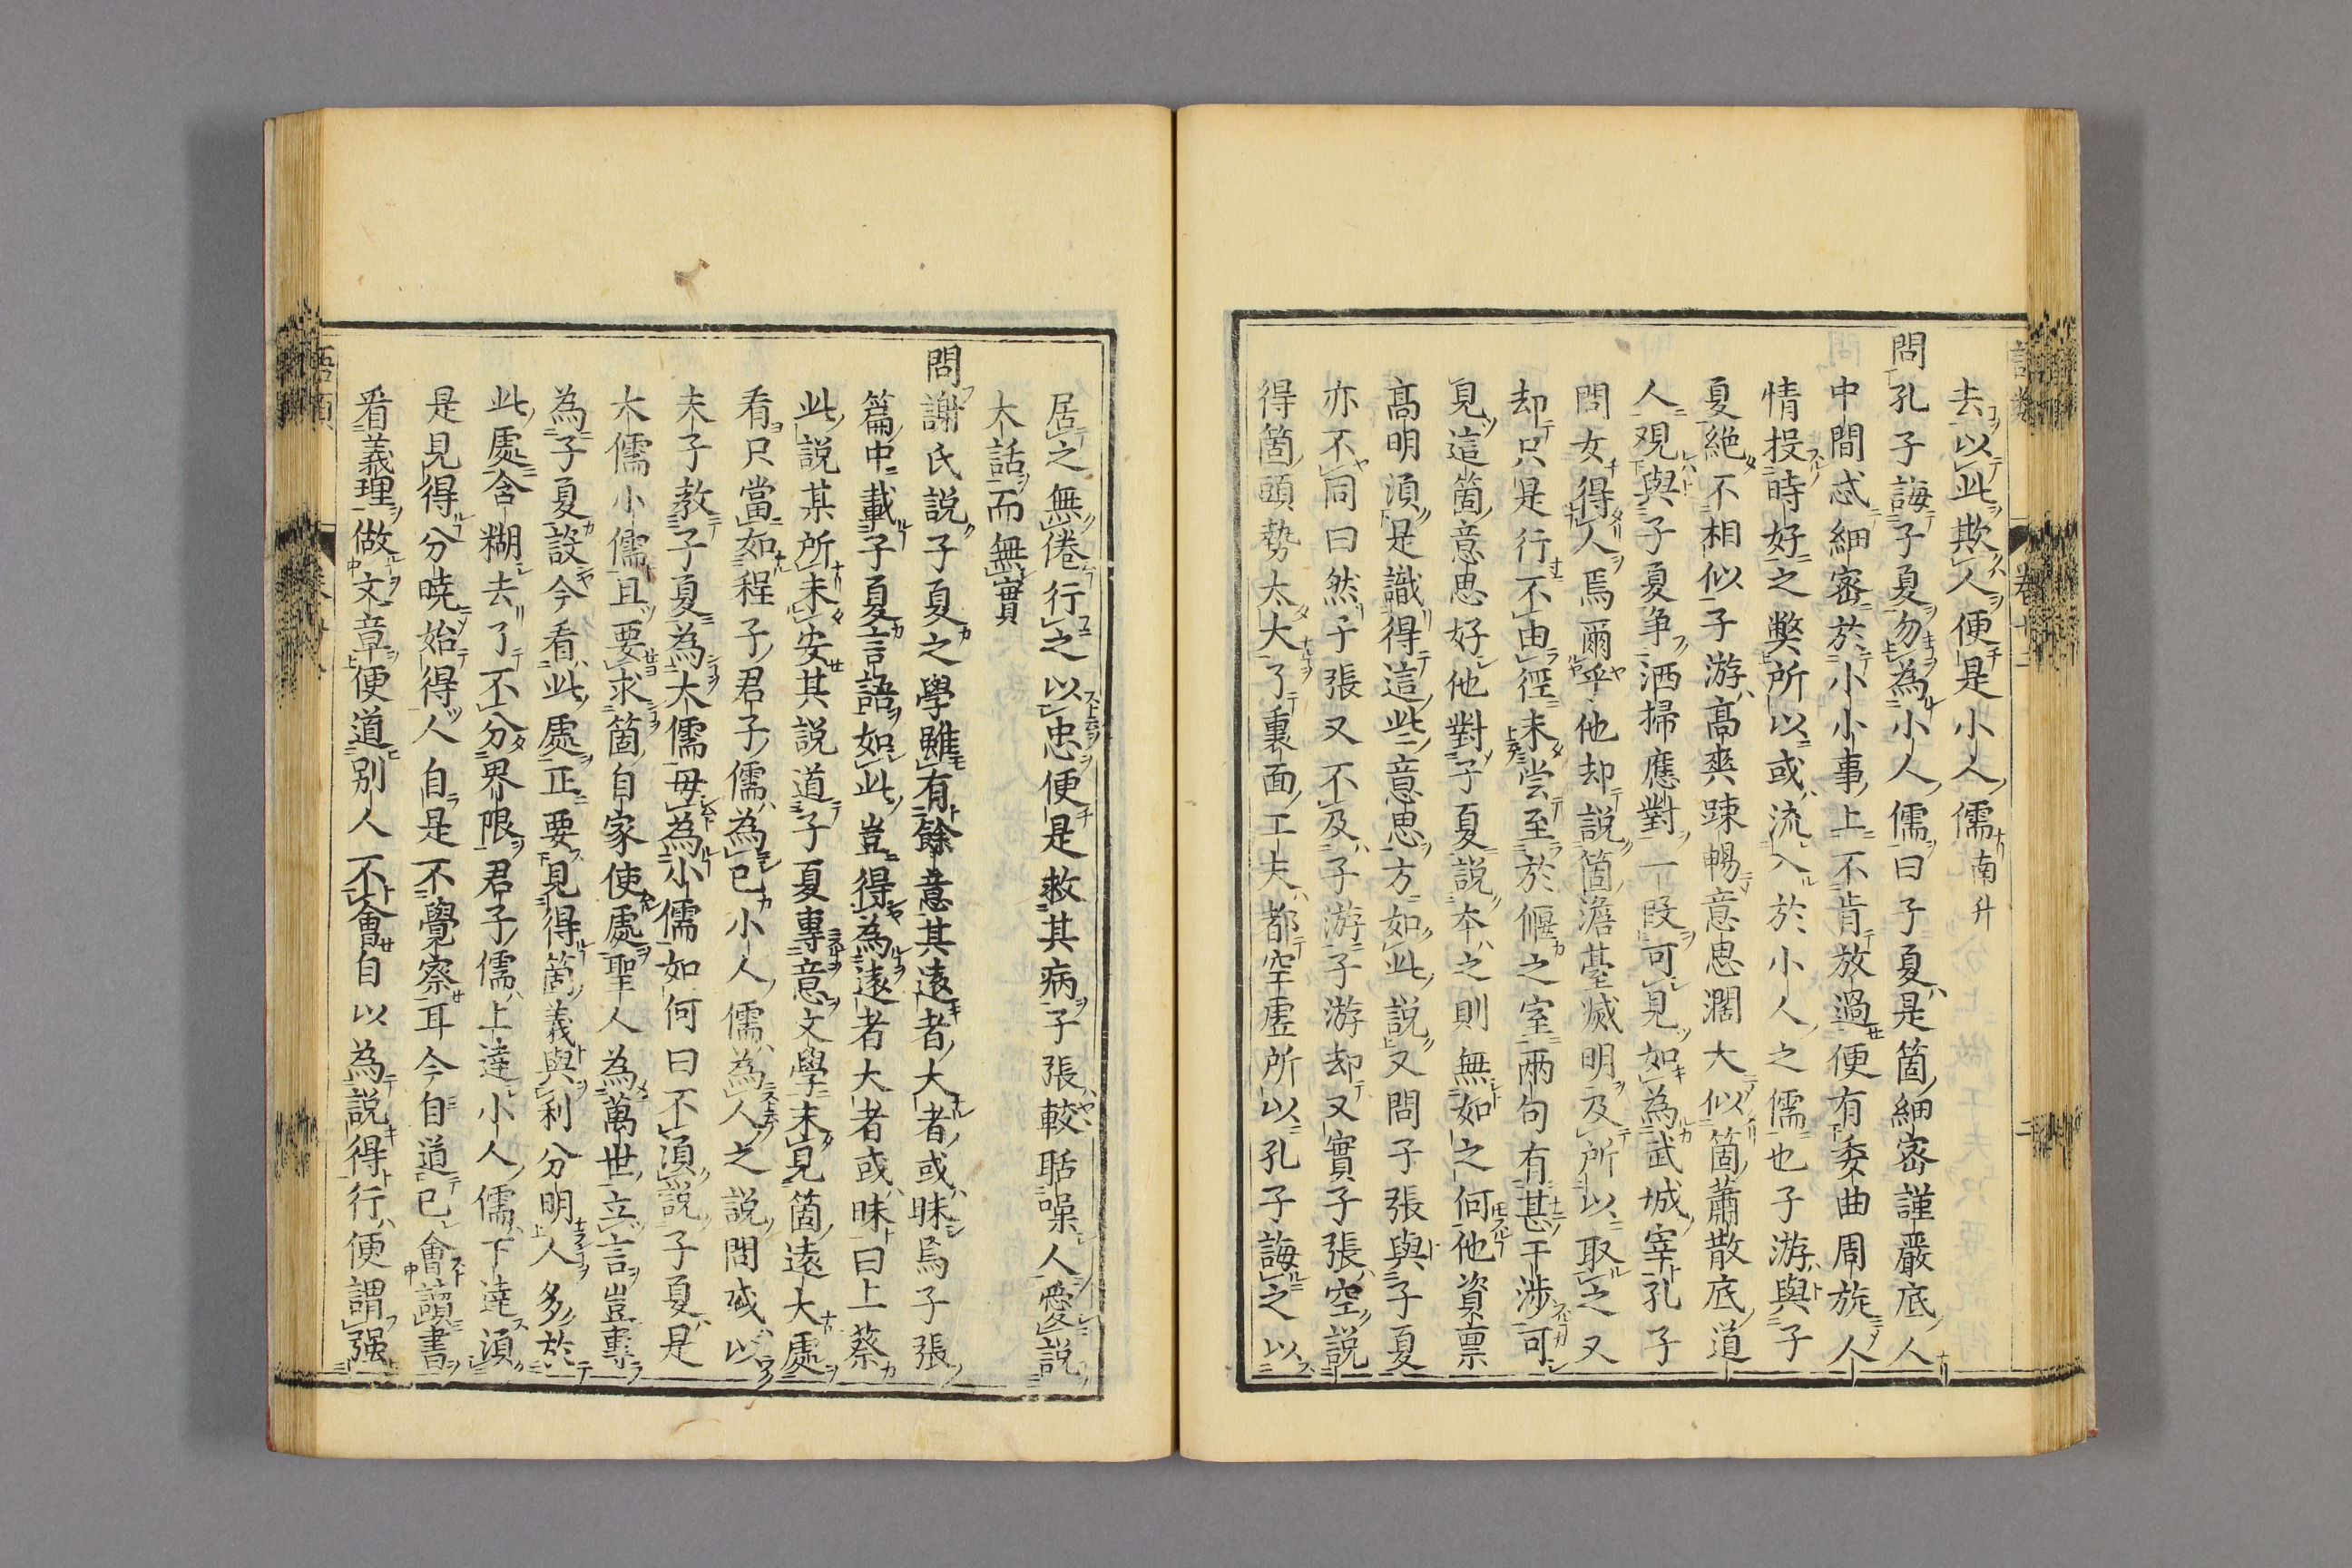 去以此欺人便是小人儒南升
問孔子誨子夏勿為小人儒曰子夏是箇細密謹嚴底人
中間忒細密於小小事上不肯放過便有委曲周旋人
情投時好之弊所以或流入於小人之儒也子游與子
夏絶不相似子游髙爽踈暢意思濶大似箇蕭散底道
人觀與子夏争洒掃應對一段可見如為武城宰孔子
問女得人焉爾乎他却説箇澹臺滅明及所以取之又
却只是行不由徑未嘗至於偃之室兩句有甚干渉可
見這箇意思好他對子夏説本之則無如之何他資禀
髙明湏是識得這些意思方如此説又問子張與子夏
亦不同曰然子張又不及子游子游却又實子張空説
得箇頭勢太大了裏面工夫都空虚所以孔子誨之以
居之無倦行之以忠便是救其病子張較聒噪人愛説
大話而無實
問謝氏説子夏之學雖有餘意其遠者大者或昧焉子張
篇中載子夏言語如此豈得為遠者大者或昧曰上蔡
此説某所未安其説道子夏專意文學未見箇遠大處
看只當如程子君子儒為已小人儒為人之説問或以
夫子教子夏為大儒毋為小儒如何曰不湏説子夏是
大儒小儒且要求箇自家使處聖人為萬世立言豈專
為子夏設今看此處正要見得箇義與利分明人多於
此處含糊去了不分界限君子儒上達小人儒下達湏
是見得分曉始得人自是不覺察耳今自道已會讀書
看義理做文章便道别人不會自以為説得行便謂强
語類
卷